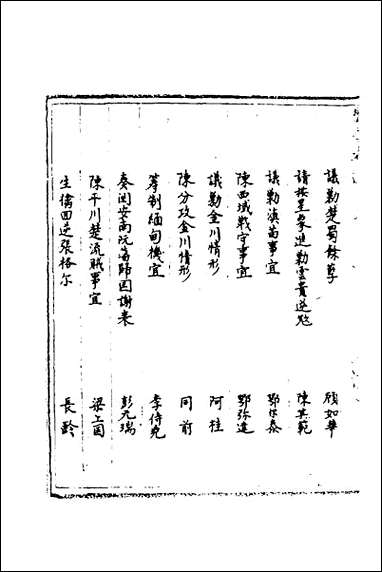 議勦楚蜀餘孽 顏如華
請按星象進勦雲貴逆賊 陳其範
議勦滇苗事宜 鄂尔泰
陳西域戰守事宜 鄂弥達
議勦金川情形 阿桂
陳分攻金川情形 同前
籌制緬甸機宜 李侍堯
奏因安南阮 歸因謝表 彭元瑞
陳平川楚流賊事宜 梁上國
生擒回逆張格尔 長齡